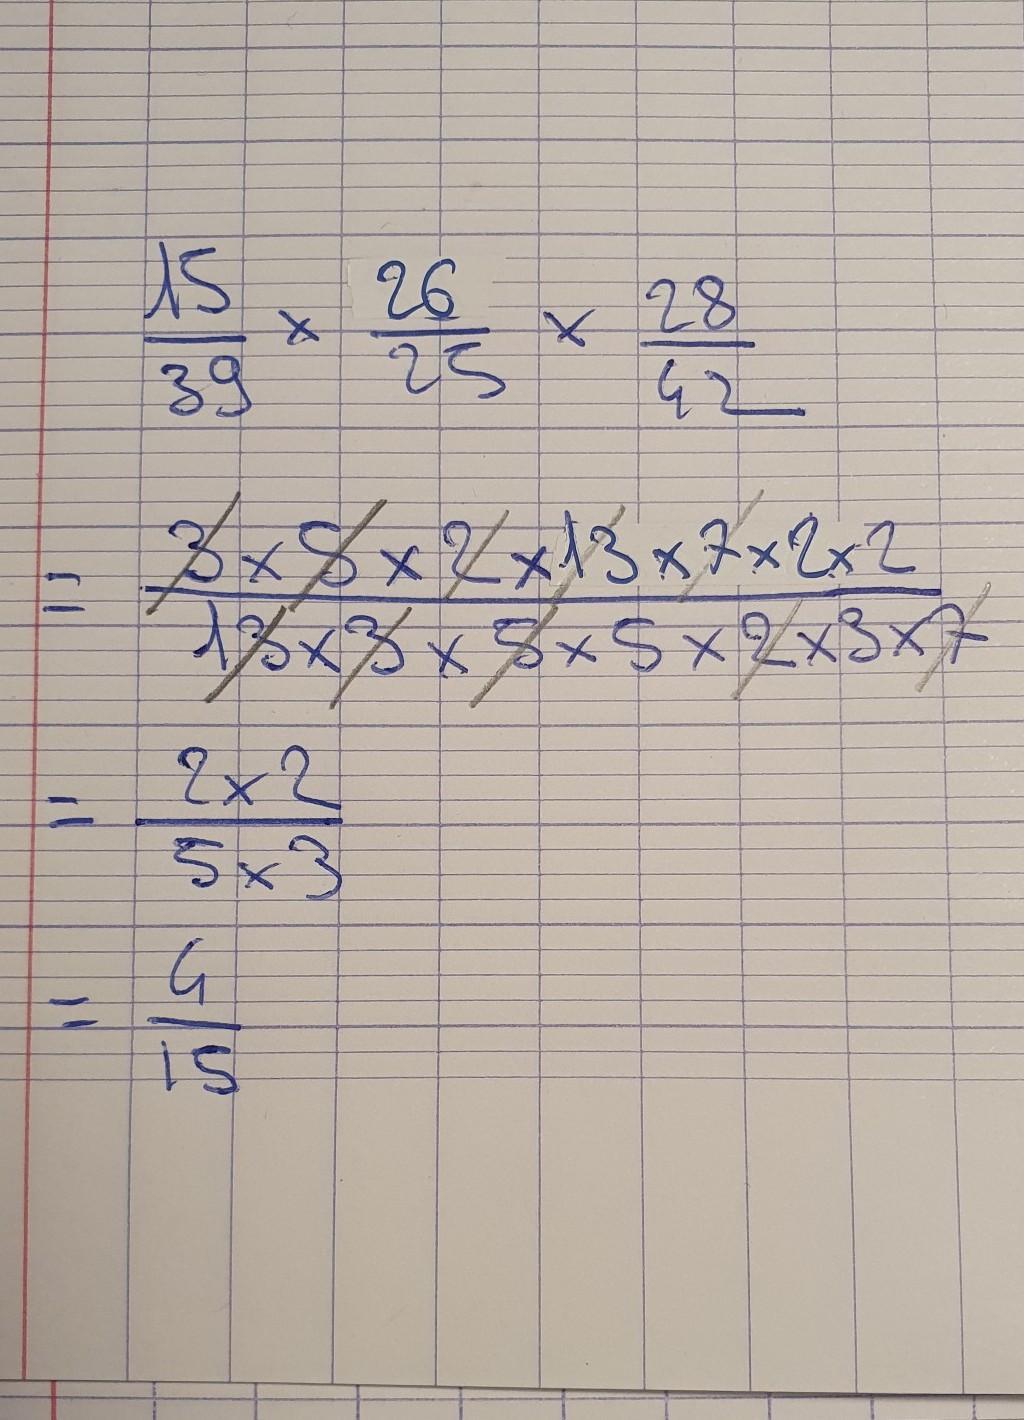 15/39 × 26/25 × 28/42
= 3×5×2×13×7×2×2 / 13×3×5×5×2×3×7
= 2×2 / 5×3
= 4/15